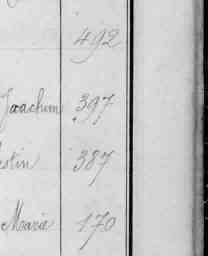 492
Joachim 397
estin 387
Marie 170